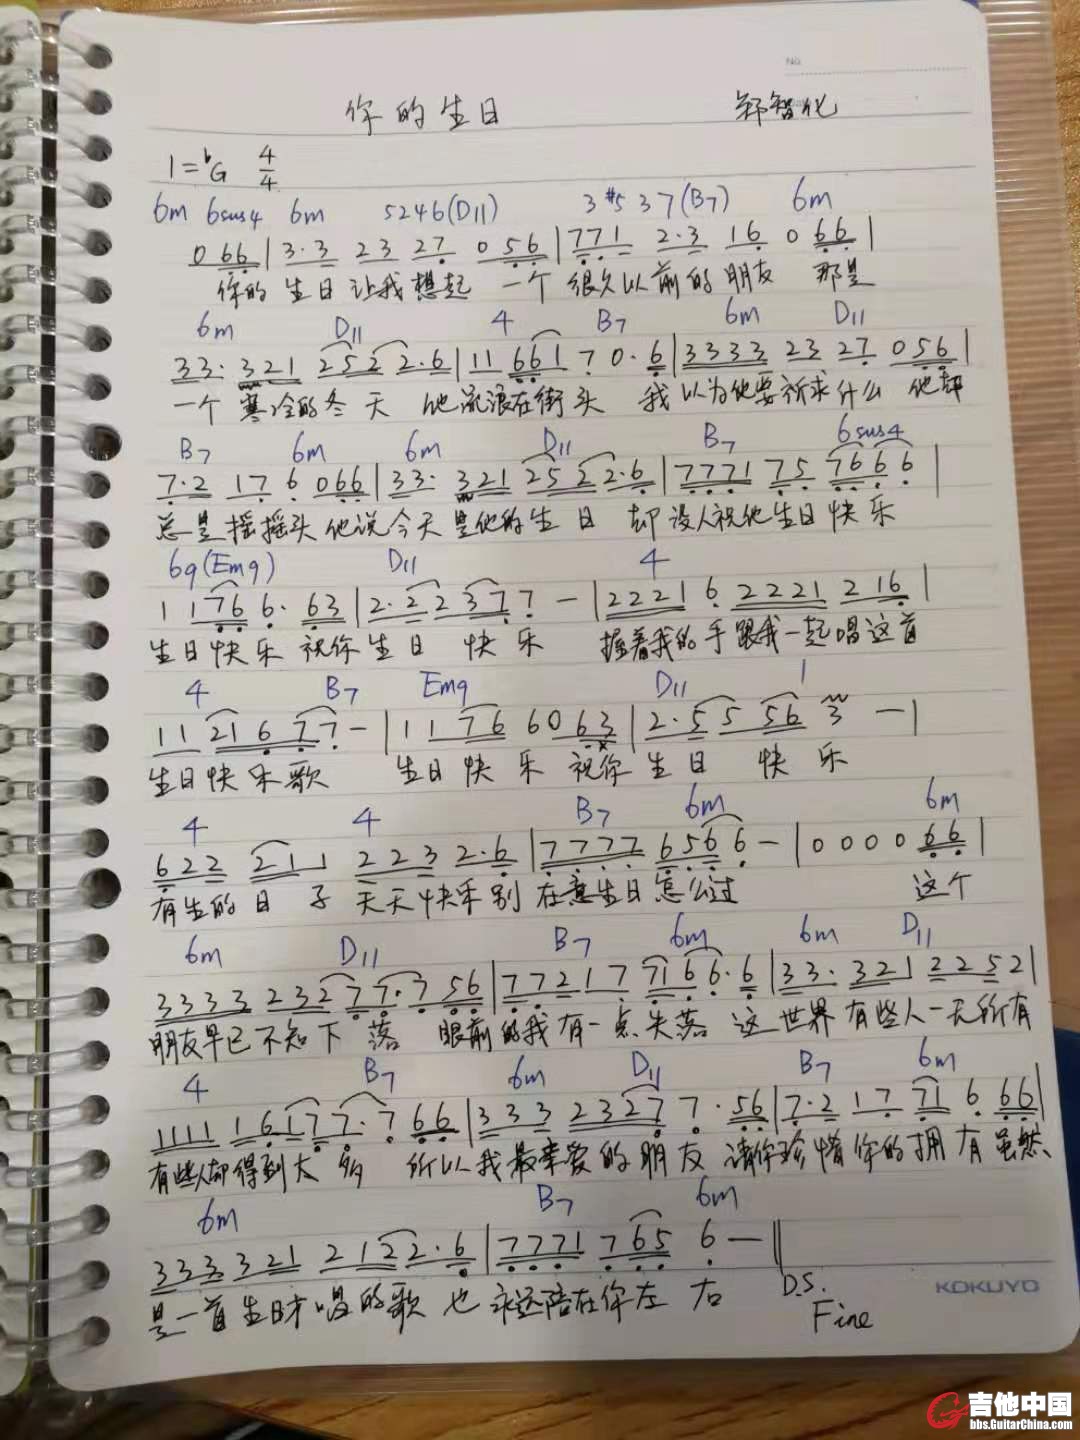 No.
你的生日 郑智化
1=♭G 4/4
6m 6sus4 6m 5246(D11) 3#5 37(B7) 6m
0 66 | 3·3 23 27 0 56 | 771 2·3 16 0 66 |
你的 生日让我想起 一个 很久以前的朋友 那是
6m D11 4 B7 6m D11
33· 321 252 2·6 | 11 661 7 0·6 | 3333 23 27 056 |
一个 寒冷的冬天 他流浪在街头 我以为他要祈求什么 他却
B7 6m 6m D11 B7 6sus4
7·2 17 6 066 | 33· 321 252 2·6 | 7771 75 766 6 |
总是摇摇头 他说今天是他的生日 却没人祝他生日快乐
69(Em9) D11 4
1 1 76 6· 63 | 2·2 2377 – | 2221 6 2221 2 16 |
生日快乐 祝你生日 快乐 握着我的手跟我一起唱这首
4 B7 Em9 D11 1
11 21677 – | 11 76 60 63 | 2·5 5 56 3 – |
生日快乐歌 生日快乐 祝你生日 快乐
4 4 B7 6m 6m
622 211 223 2·6 | 7777 6566 – | 0 0 0 0 66 |
有生的日子 天天快乐别 在意生日怎么过 这个
6m D11 B7 6m 6m D11
3333 23277·7 56 | 77217 7166·6 | 33· 321 2252 |
朋友早已不知下落 眼前的我有一点失落 这世界有些人一无所有
4 B7 6m D11 B7 6m
1111 16177·7 66 | 333 2327 7·56 | 7·2 17 71 6 66 |
有些人却得到太多 所以我最亲爱的朋友 请你珍惜你的拥有 虽然
6m B7 6m
333 321 2122·6 | 7771 765 6 – ‖
是一首生日才唱的歌 也永远陪在你左右 D.S.
Fine
KOKUYO
吉他中国
bbs.GuitarChina.com